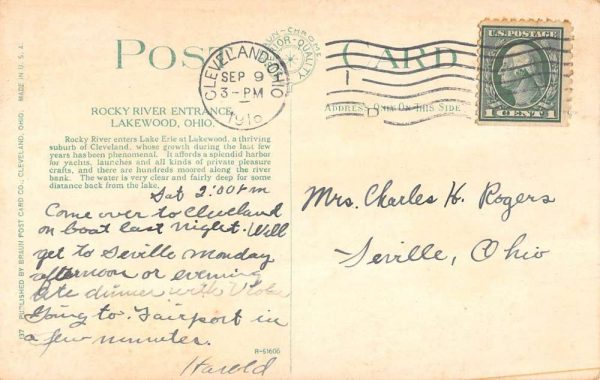 POST CARD
CLEVELAND, OHIO
SEP 9
3-PM
U.S. POSTAGE
1 CENT 1
ADDRESS ONLY ON THIS SIDE
ROCKY RIVER ENTRANCE,
LAKEWOOD, OHIO.
Rocky River enters Lake Erie at Lakewood, a thriving
suburb of Cleveland, whose growth during the last few
years has been phenomenal. It affords a splendid harbor
for yachts, launches and all kinds of private pleasure
crafts, and there are hundreds moored along the river
bank. The water is very clear and fairly deep for some
distance back from the lake.
Sat 2:00 P m
Come over to Cleveland
on boat last night. Will
get to Seville Monday
afternoon or evening
Ate dinner with
Going to Fairport in
a few minutes.
Harold
Mrs. Charles H. Rogers
Seville, Ohio
R-51606
137 PUBLISHED BY BRAUN POST CARD CO., CLEVELAND, OHIO. MADE IN U.S.A.